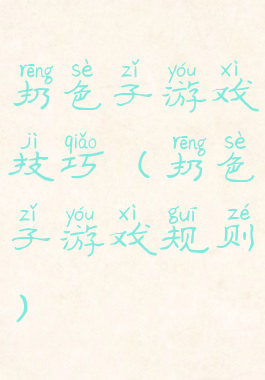 rēng sè zǐ yóu xì
扔色子游戏
jì qiǎo rēng sè
技巧(扔色
zǐ yóu xì guī zé
子游戏规则
)